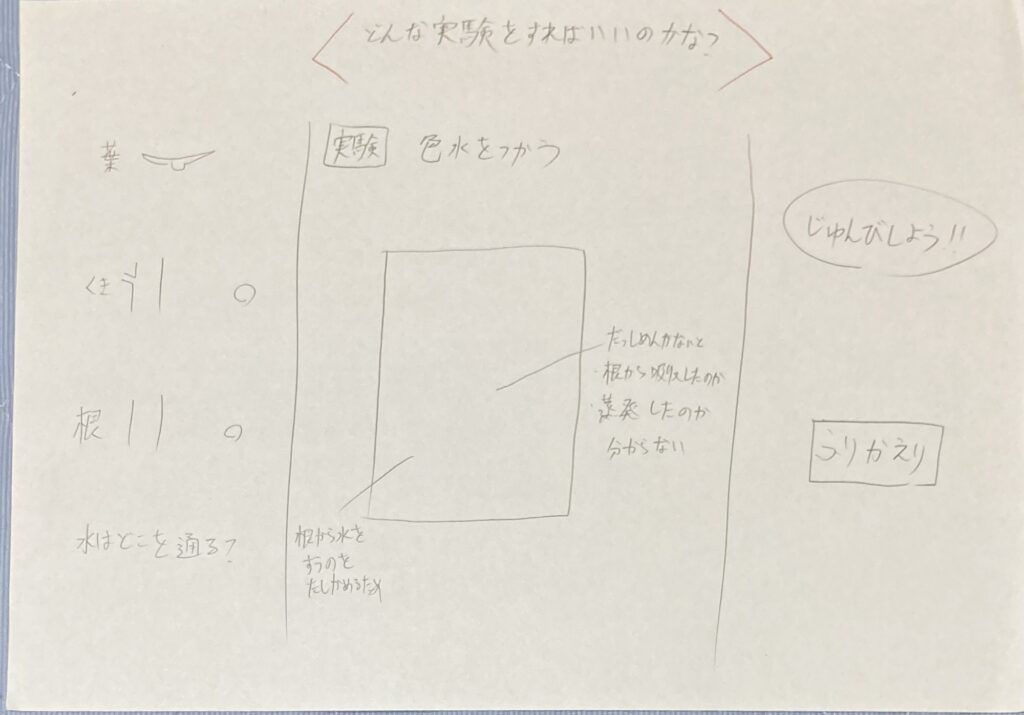 どんな実験をすればいいのかな?
葉
くき
根
水はどこを通る?
実験 色水をつかう
だっしめんがないと
・根から吸収したのか
・蒸発したのか
分からない
根から水を
すうのを
たしかめるため
じゅんびしよう!!
ふりかえり